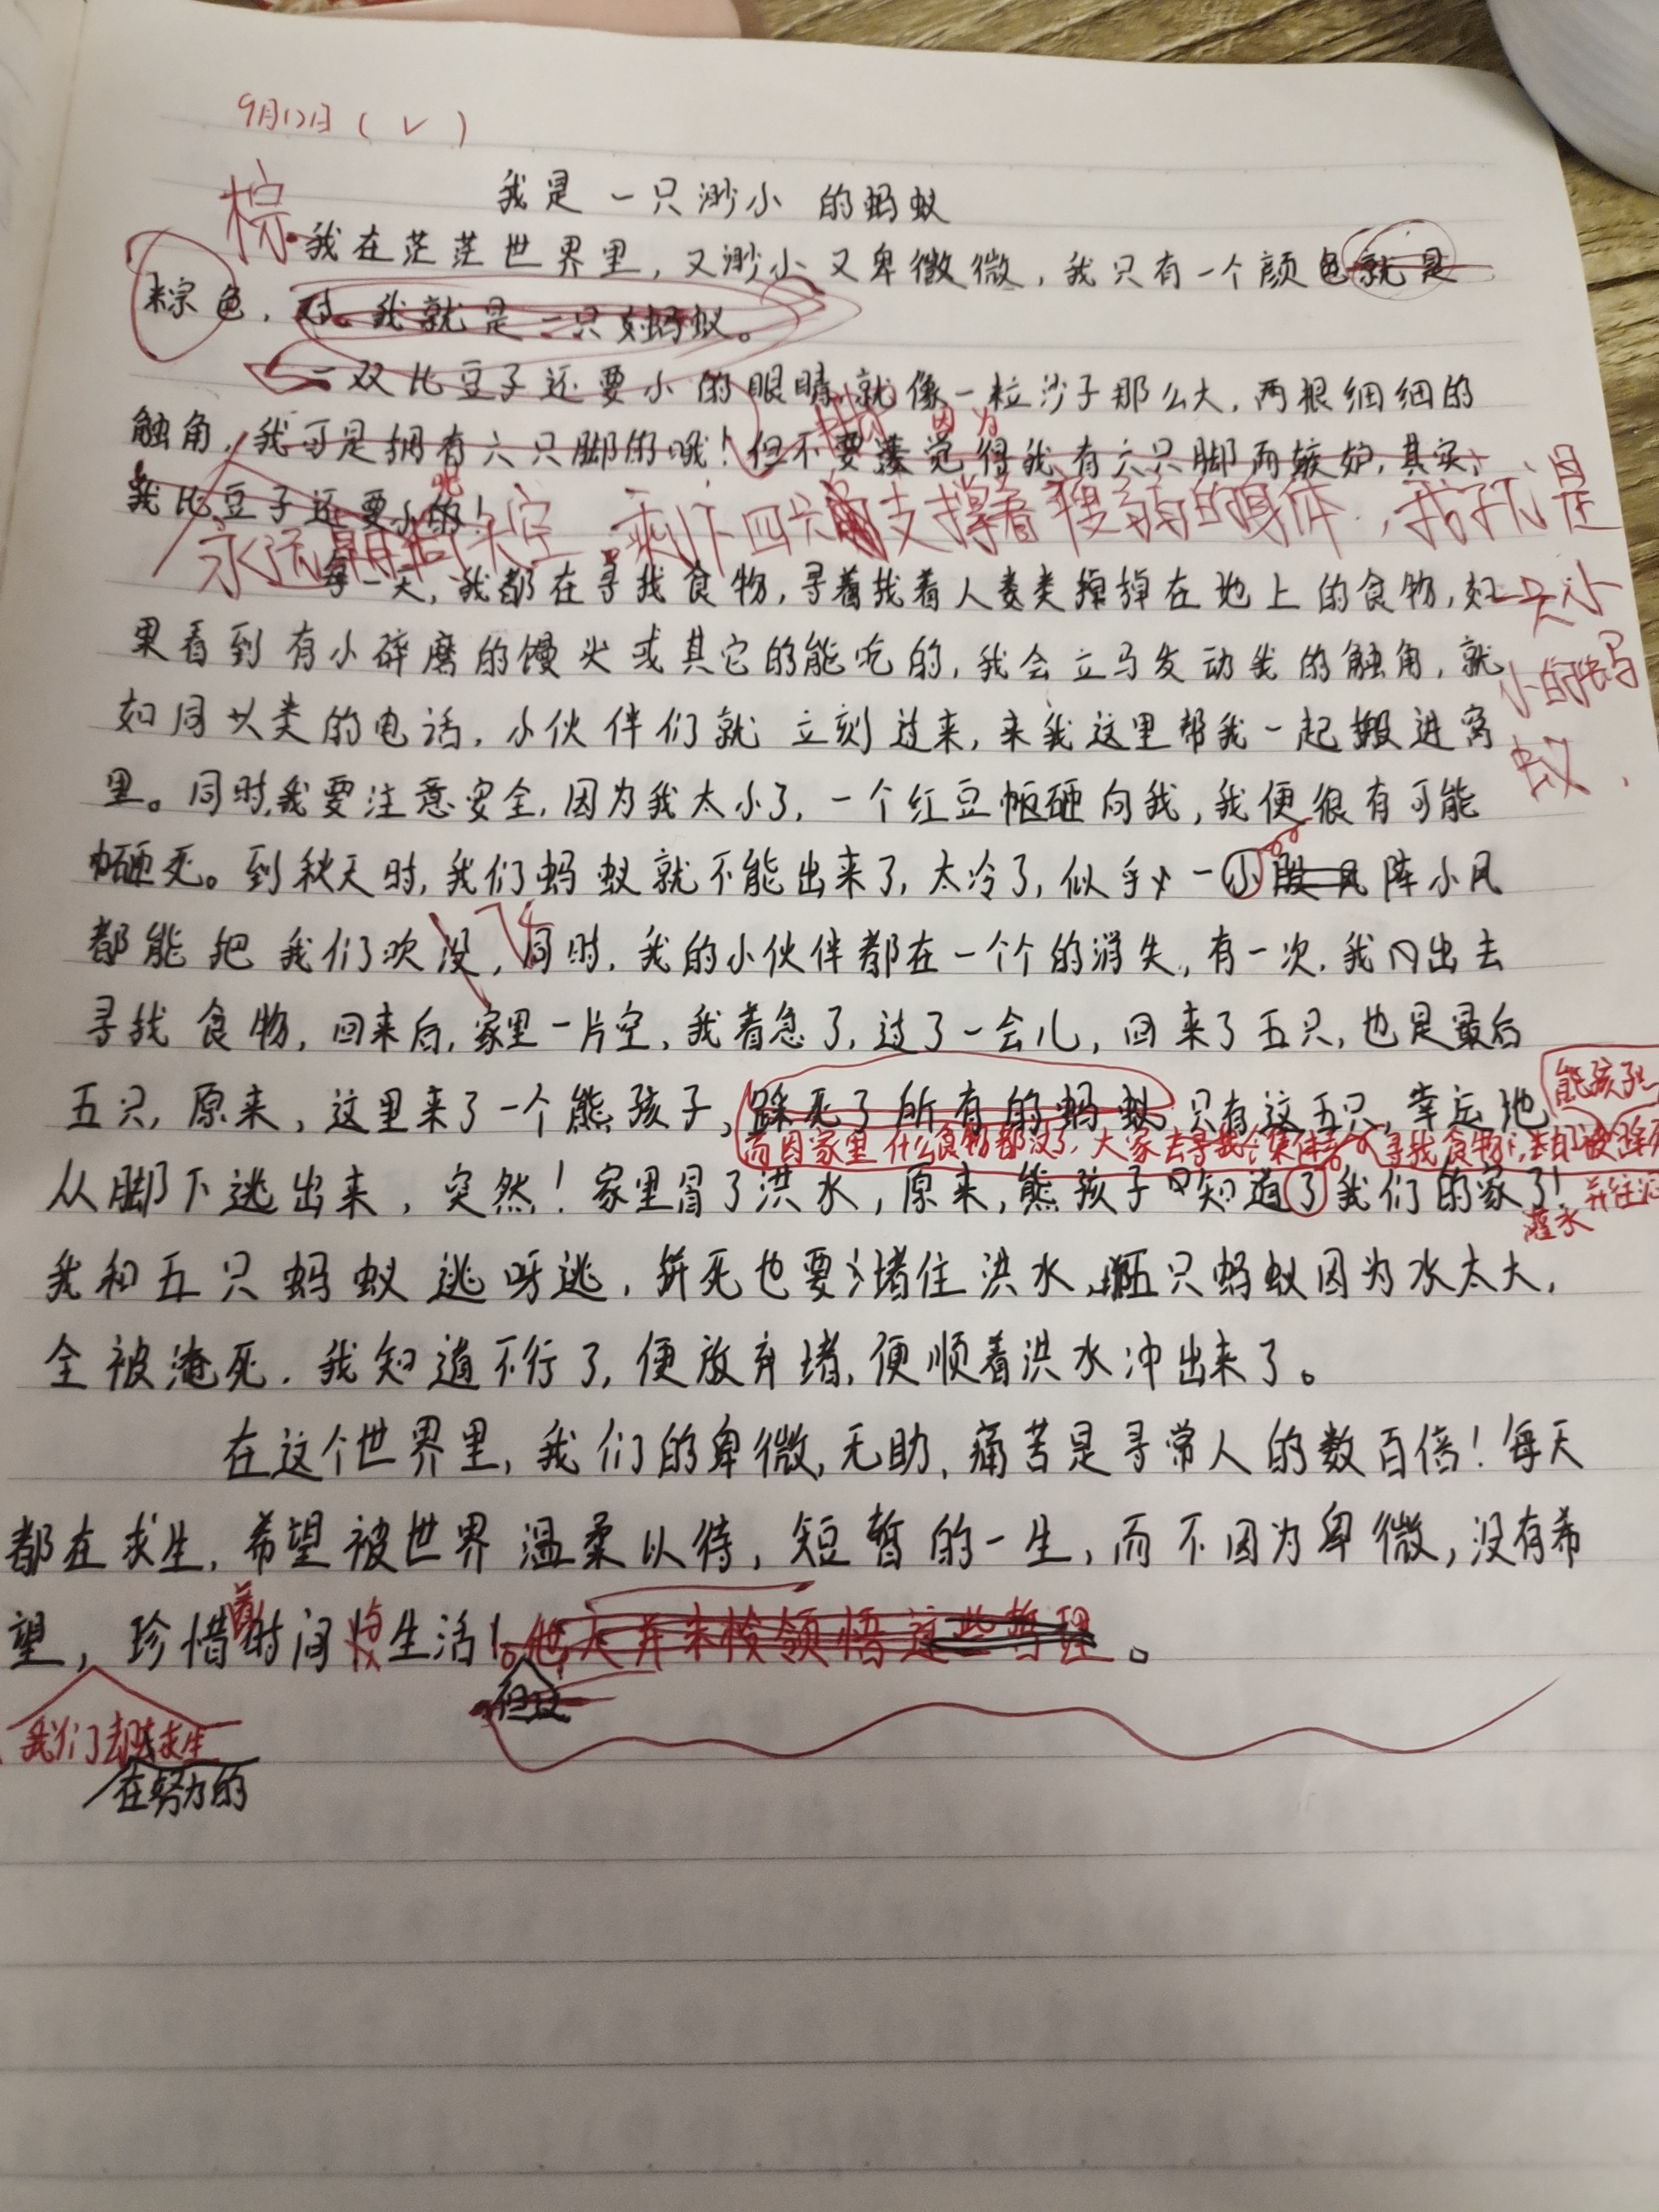 9月12日（√）
我是一只渺小的蚂蚁
棕
我在茫茫世界里，又渺小又卑微微，我只有一个颜色就是
棕色，对，我就是一只蚂蚁。
一双比豆子还要小的眼睛，就像一粒沙子那么大，两根细细的
触角，我可是拥有六只脚的哦！但不要觉得我有六只脚而嫉妒，其实，
因为
我比豆子还要小的！
永远 天空，剩下四只 支撑着瘦弱的身体，我不是
一只小
小的蚂
蚁，
每一天，我都在寻找食物，寻着找着人类掉在地上的食物，如
果看到有小碎磨的馒头或其它的能吃的，我会立马发动我的触角，就
如同人类的电话，小伙伴们就立刻过来，来我这里帮我一起搬进窝
里。同时，我要注意安全，因为我太小了，一个红豆砸向我，我便很有可能
砸死。到秋天时，我们蚂蚁就不能出来了，太冷了，似乎一小股风阵小风
都能把我们吹没，同时，我的小伙伴都在一个个的消失，有一次，我出去
飞
寻找食物，回来后，家里一片空，我着急了，过了一会儿，回来了五只，也是最后
五只，原来，这里来了一个熊孩子，踩死了所有的蚂蚁，只有这五只，幸运地
熊孩子
而因家里什么食物都没了，大家去寻找 集体 寻找食物， 被踩死
从脚下逃出来，突然！家里冒了洪水，原来，熊孩子知道了我们的家了！
并往
灌水
我和五只蚂蚁逃呀逃，拼死也要堵住洪水，五只蚂蚁因为水太大，
全被淹死，我知道不行了，便放弃堵，便顺着洪水冲出来了。
在这个世界里，我们的卑微，无助，痛苦是寻常人的数百倍！每天
都在求生，希望被世界温柔以待，短暂的一生，而不因为卑微，没有希
望，珍惜着时间 生活！他人并未 领悟这些哲理。
但这
我们却 求生
在努力的